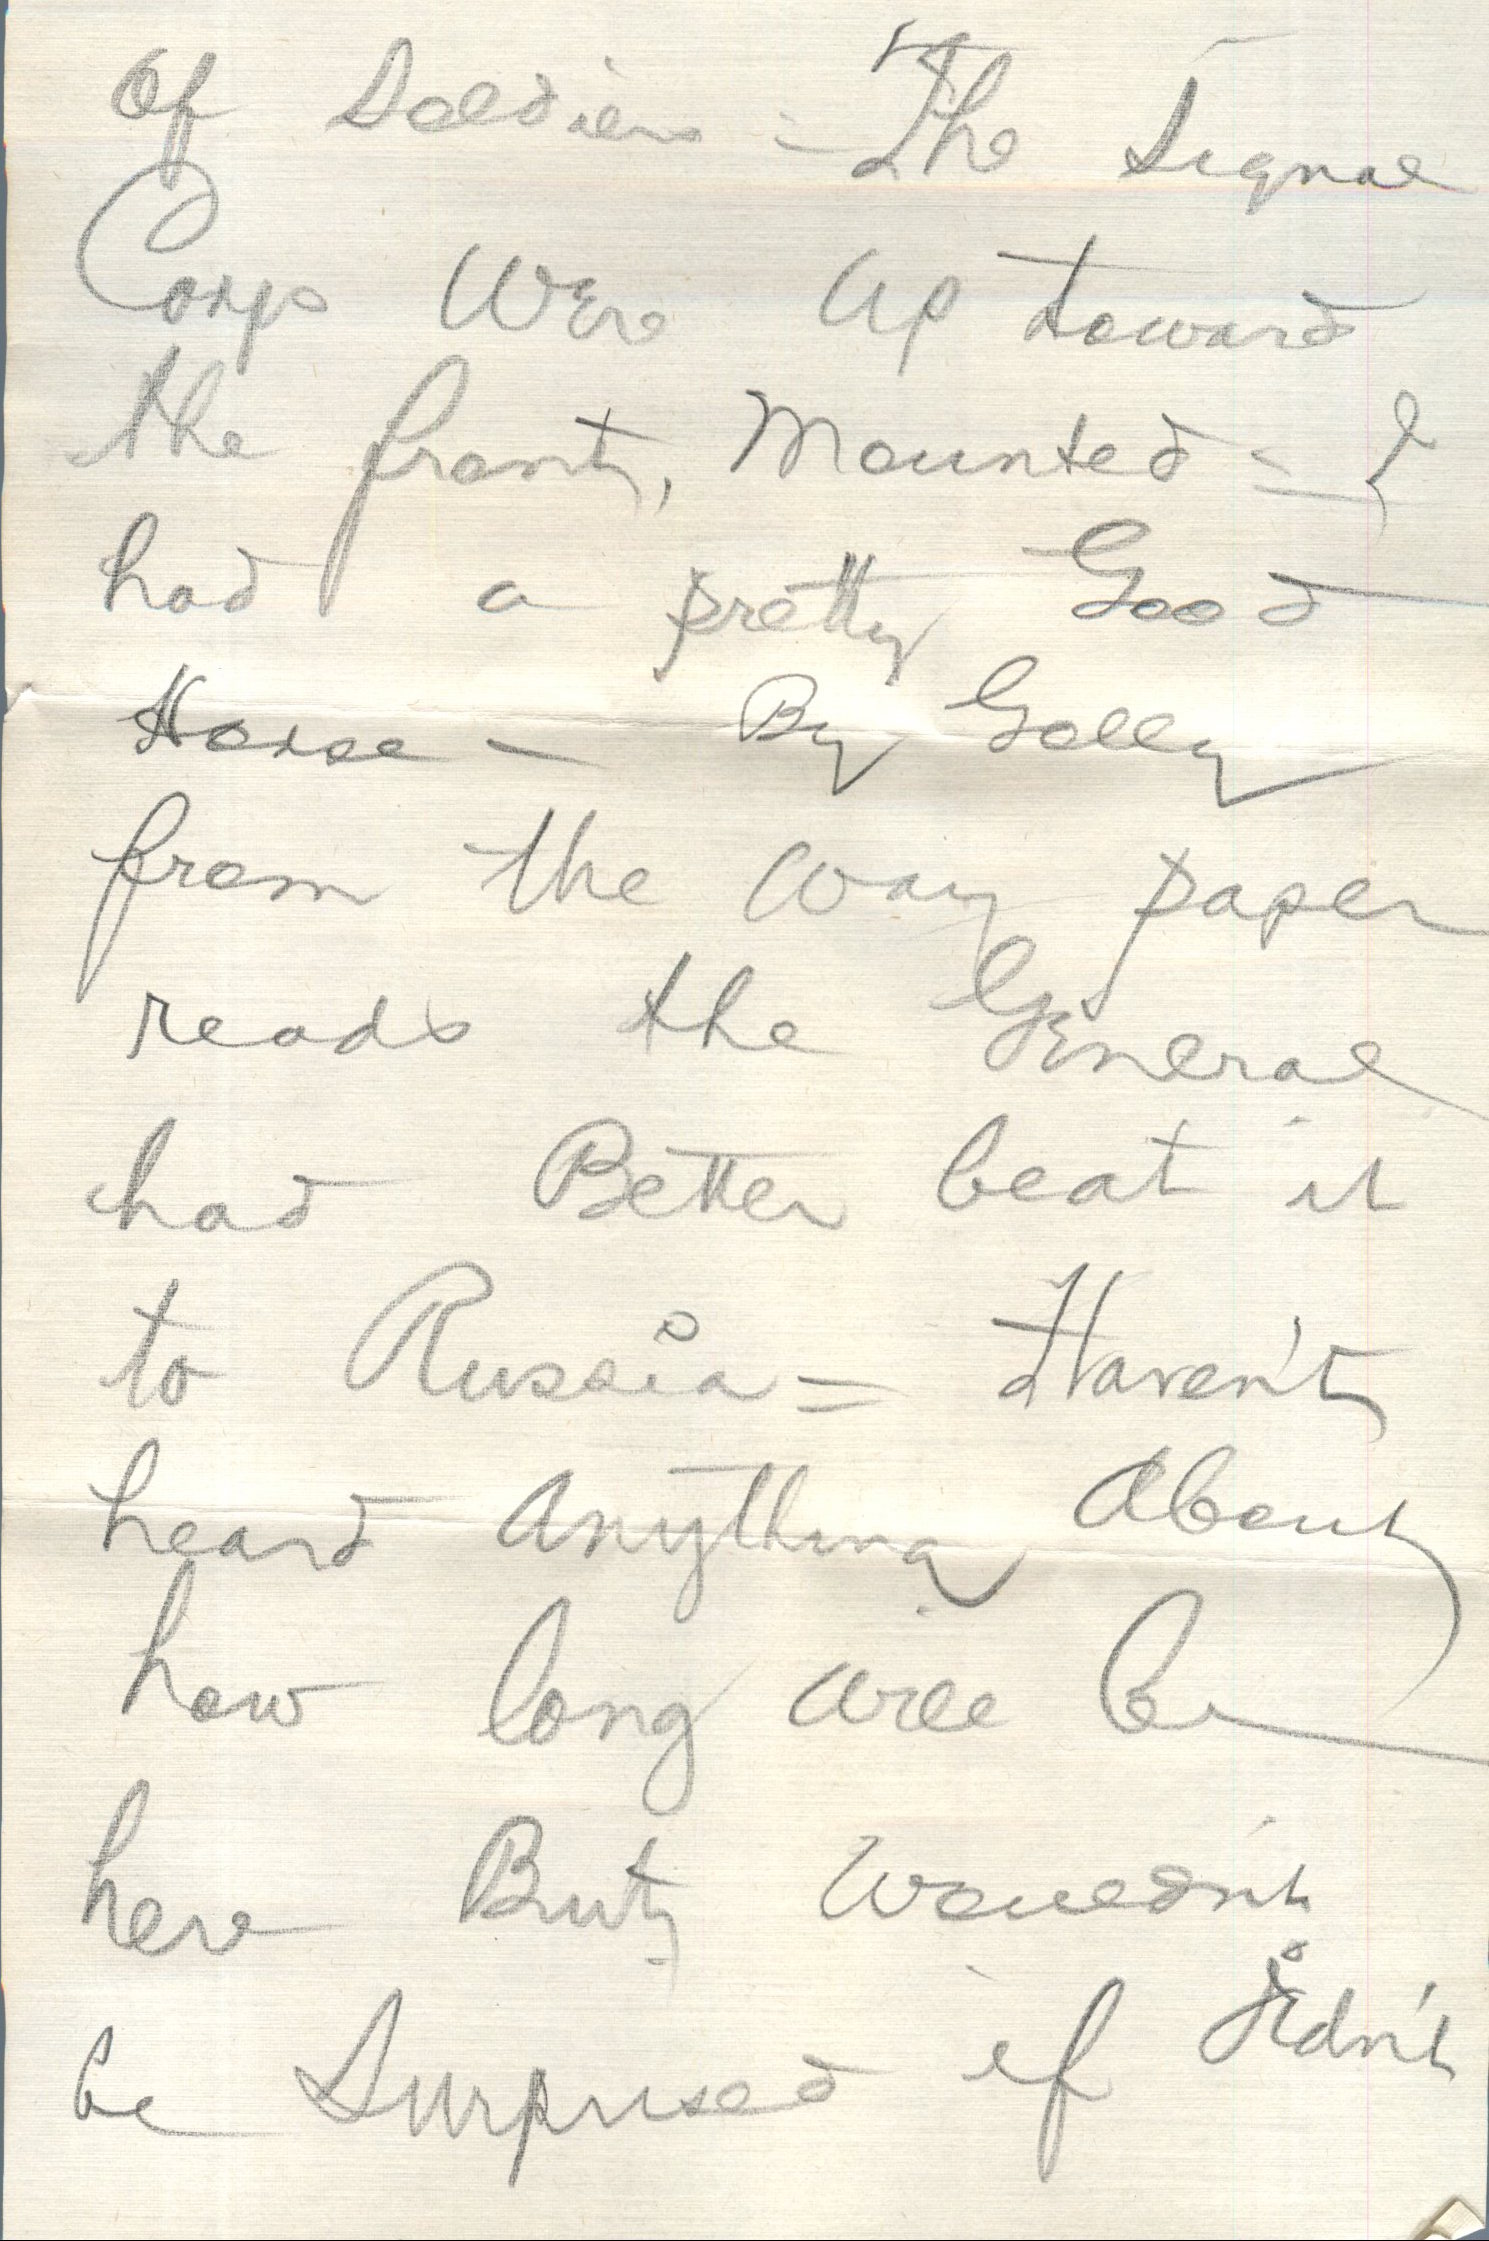 of Soldiers = The Signal
Corps Were Up toward
the front, Mounted = I
had a pretty Good
Horse — By Golly
from the way paper
reads the General
had Better beat it
to Russia = Haven't
heard Anything About
how long will be
here But Wouldn't
be Surprised if didn't